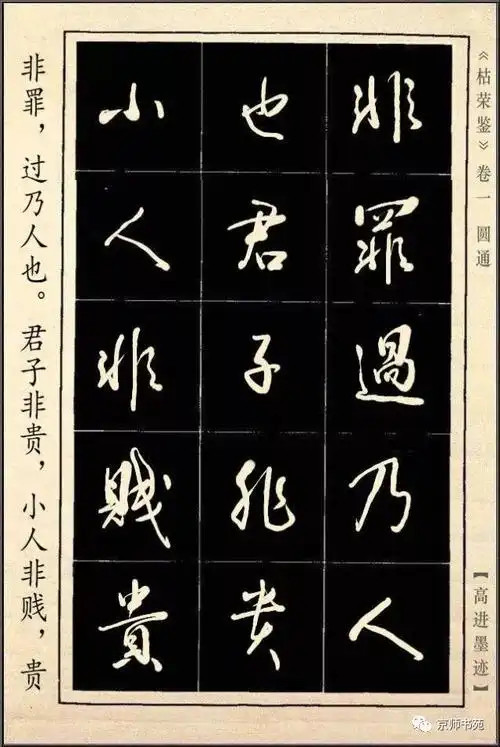 《枯荣鉴》卷一 圆通
非罪過乃人
也君子非贵
小人非賤貴
非罪，过乃人也。君子非贵，小人非贱，贵
【高进墨迹】
京师书苑